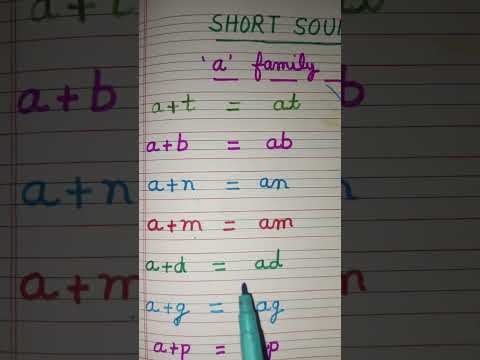 SHORT SOUN
'a' family
a+t = at
a+b = ab
a+n = an
a+m = am
a+d = ad
a+g = ag
a+p = p